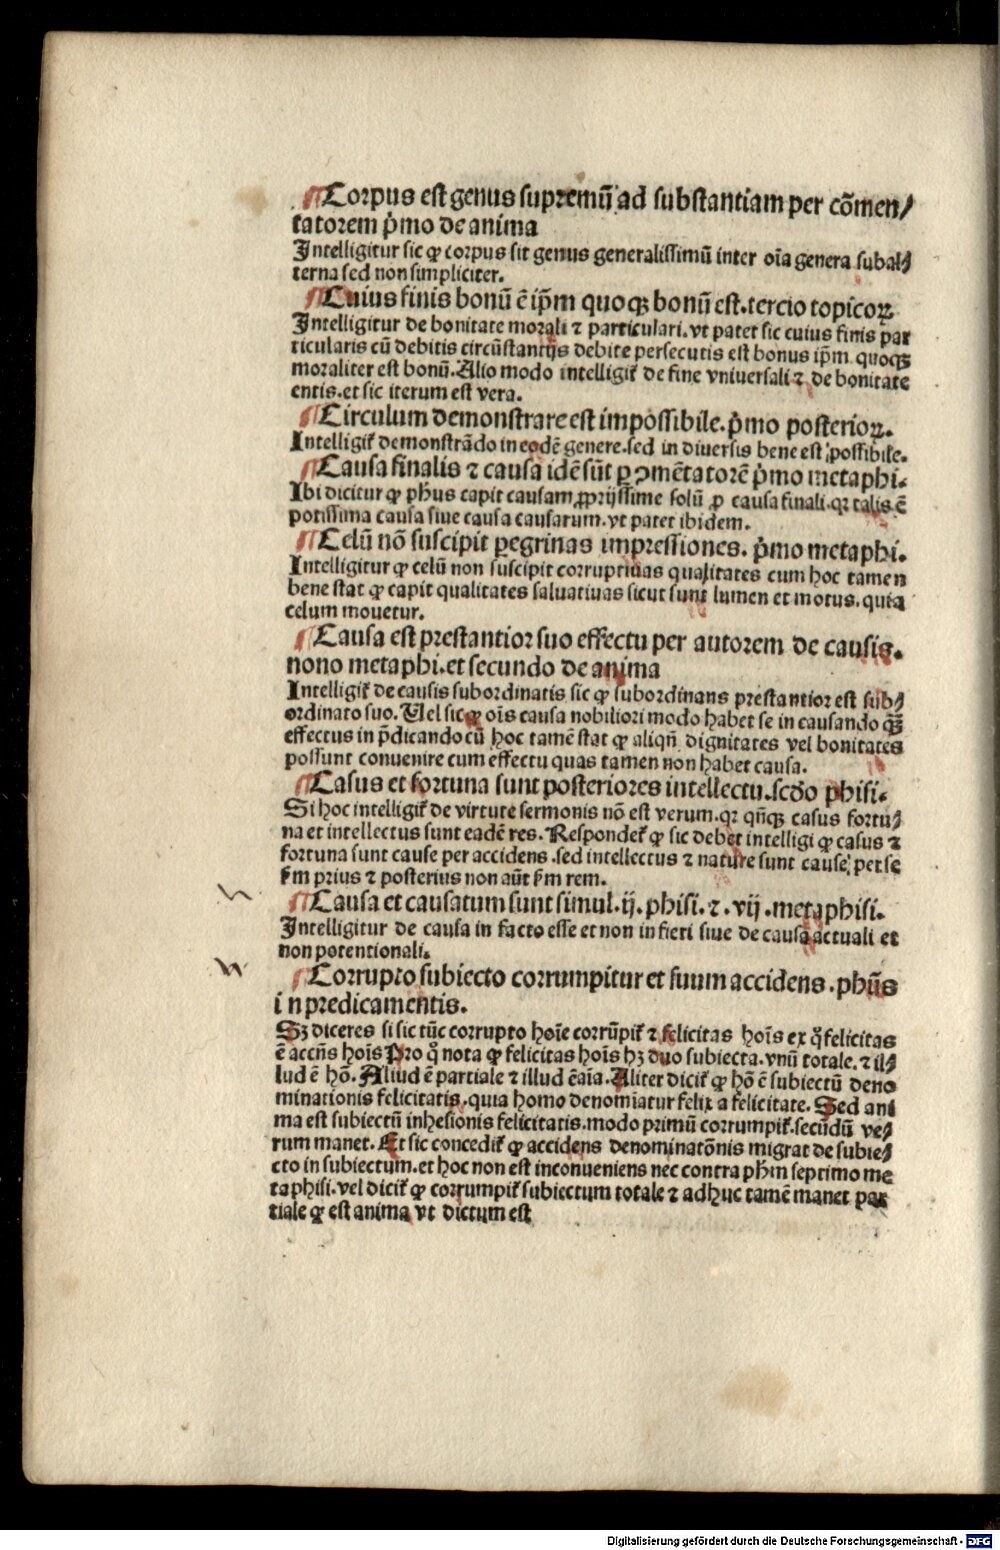 ¶Corpus est genus supremū ad substantiam per cōmen/
tatorem p̄mo de anima
Intelligitur sic ꝙ corpus sit genus generalissimū inter oīa genera subal/
terna sed non simpliciter.
¶Cuius finis bonū ē ip̄m quoqꝫ bonū est. tercio topicoꝝ.
Intelligitur de bonitate morali ⁊ particulari. vt patet sic cuius finis par
ticularis cū debitis circūstantijs debite persecutis est bonus ip̄m quoqꝫ
moraliter est bonū. Alio modo intelligit̄ de fine vniuersali ⁊ de bonitate
entis. et sic iterum est vera.
¶Circulum demonstrare est impossibile. p̄mo posterioꝝ.
Intelligit̄ demonstrādo in eodē genere. sed in diuersis bene est possibile.
¶Causa finalis ⁊ causa idē sūt ꝑ ꝯmētatorē p̄mo metaphi.
Ibi dicitur ꝙ phus capit causam ꝓprijssime solū ꝓ causa finali. qꝛ talis ē
potissima causa siue causa causarum. vt patet ibidem.
¶Celū nō suscipit ꝑegrinas impressiones. p̄mo metaphi.
Intelligitur ꝙ celū non suscipit corruptiuas qualitates cum hoc tamen
bene stat ꝙ capit qualitates saluatiuas sicut sunt lumen et motus. quia
celum mouetur.
¶Causa est prestantior suo effectu per autorem de causis.
nono metaphi. et secundo de anima
Intelligit̄ de causis subordinatis sic̄ ꝙ subordinans prestantior est sub/
ordinato suo. Uel sic ꝙ oīs causa nobiliori modo habet se in causando qꝫ̄
effectus in p̄dicando cū hoc tamē stat ꝙ aliqn̄ dignitates vel bonitates
possunt conuenire cum effectu quas tamen non habet causa.
¶Casus et fortuna sunt posteriores intellectu. scd̄o phisi.
Si hoc intelligit̄ de virtute sermonis nō est verum. qꝛ qn̄qꝫ casus fortu/
na et intellectus sunt eadē res. Respondet̄ ꝙ sic debet intelligi ꝙ casus ⁊
fortuna sunt cause per accidens. sed intellectus ⁊ nature sunt cause per se
ẜm prius ⁊ posterius non aūt ẜm rem.
¶Causa et causatum sunt simul. ij. phisi. ⁊. vij. metaphisi.
Intelligitur de causa in facto esse et non in fieri siue de causa actuali et
non potentionali.
¶Corrupto subiecto corrumpitur et suum accidens. phūs
in predicamentis.
Sꝫ diceres si sic tūc corrupto hoīe corrūpit̄ ⁊ felicitas hoīs ex q̊ felicitas
ē accn̄s hoīs Pro q̊ nota ꝙ felicitas hoīs hꝫ duo subiecta. vnū totale. ⁊ il/
lud ē hō. Aliud ē partiale ⁊ illud ē aīa. Aliter dicit̄ ꝙ hō ē subiectū deno
minationis felicitatis. quia homo denomīatur felix a felicitate. Sed ani
ma est subiectū inhesionis felicitatis. modo primū corrumpit̄. secūdū ve/
rum manet. Et sic concedit̄ ꝙ accidens denominatōnis migrat de subie/
cto in subiectum. et hoc non est inconueniens nec contra phm̄ septimo me
taphisi. vel dicit̄ ꝙ corrumpit̄ subiectum totale ⁊ adhuc tamē manet par
tiale ꝙ est anima vt dictum est
Digitalisierung gefördert durch die Deutsche Forschungsgemeinschaft - DFG